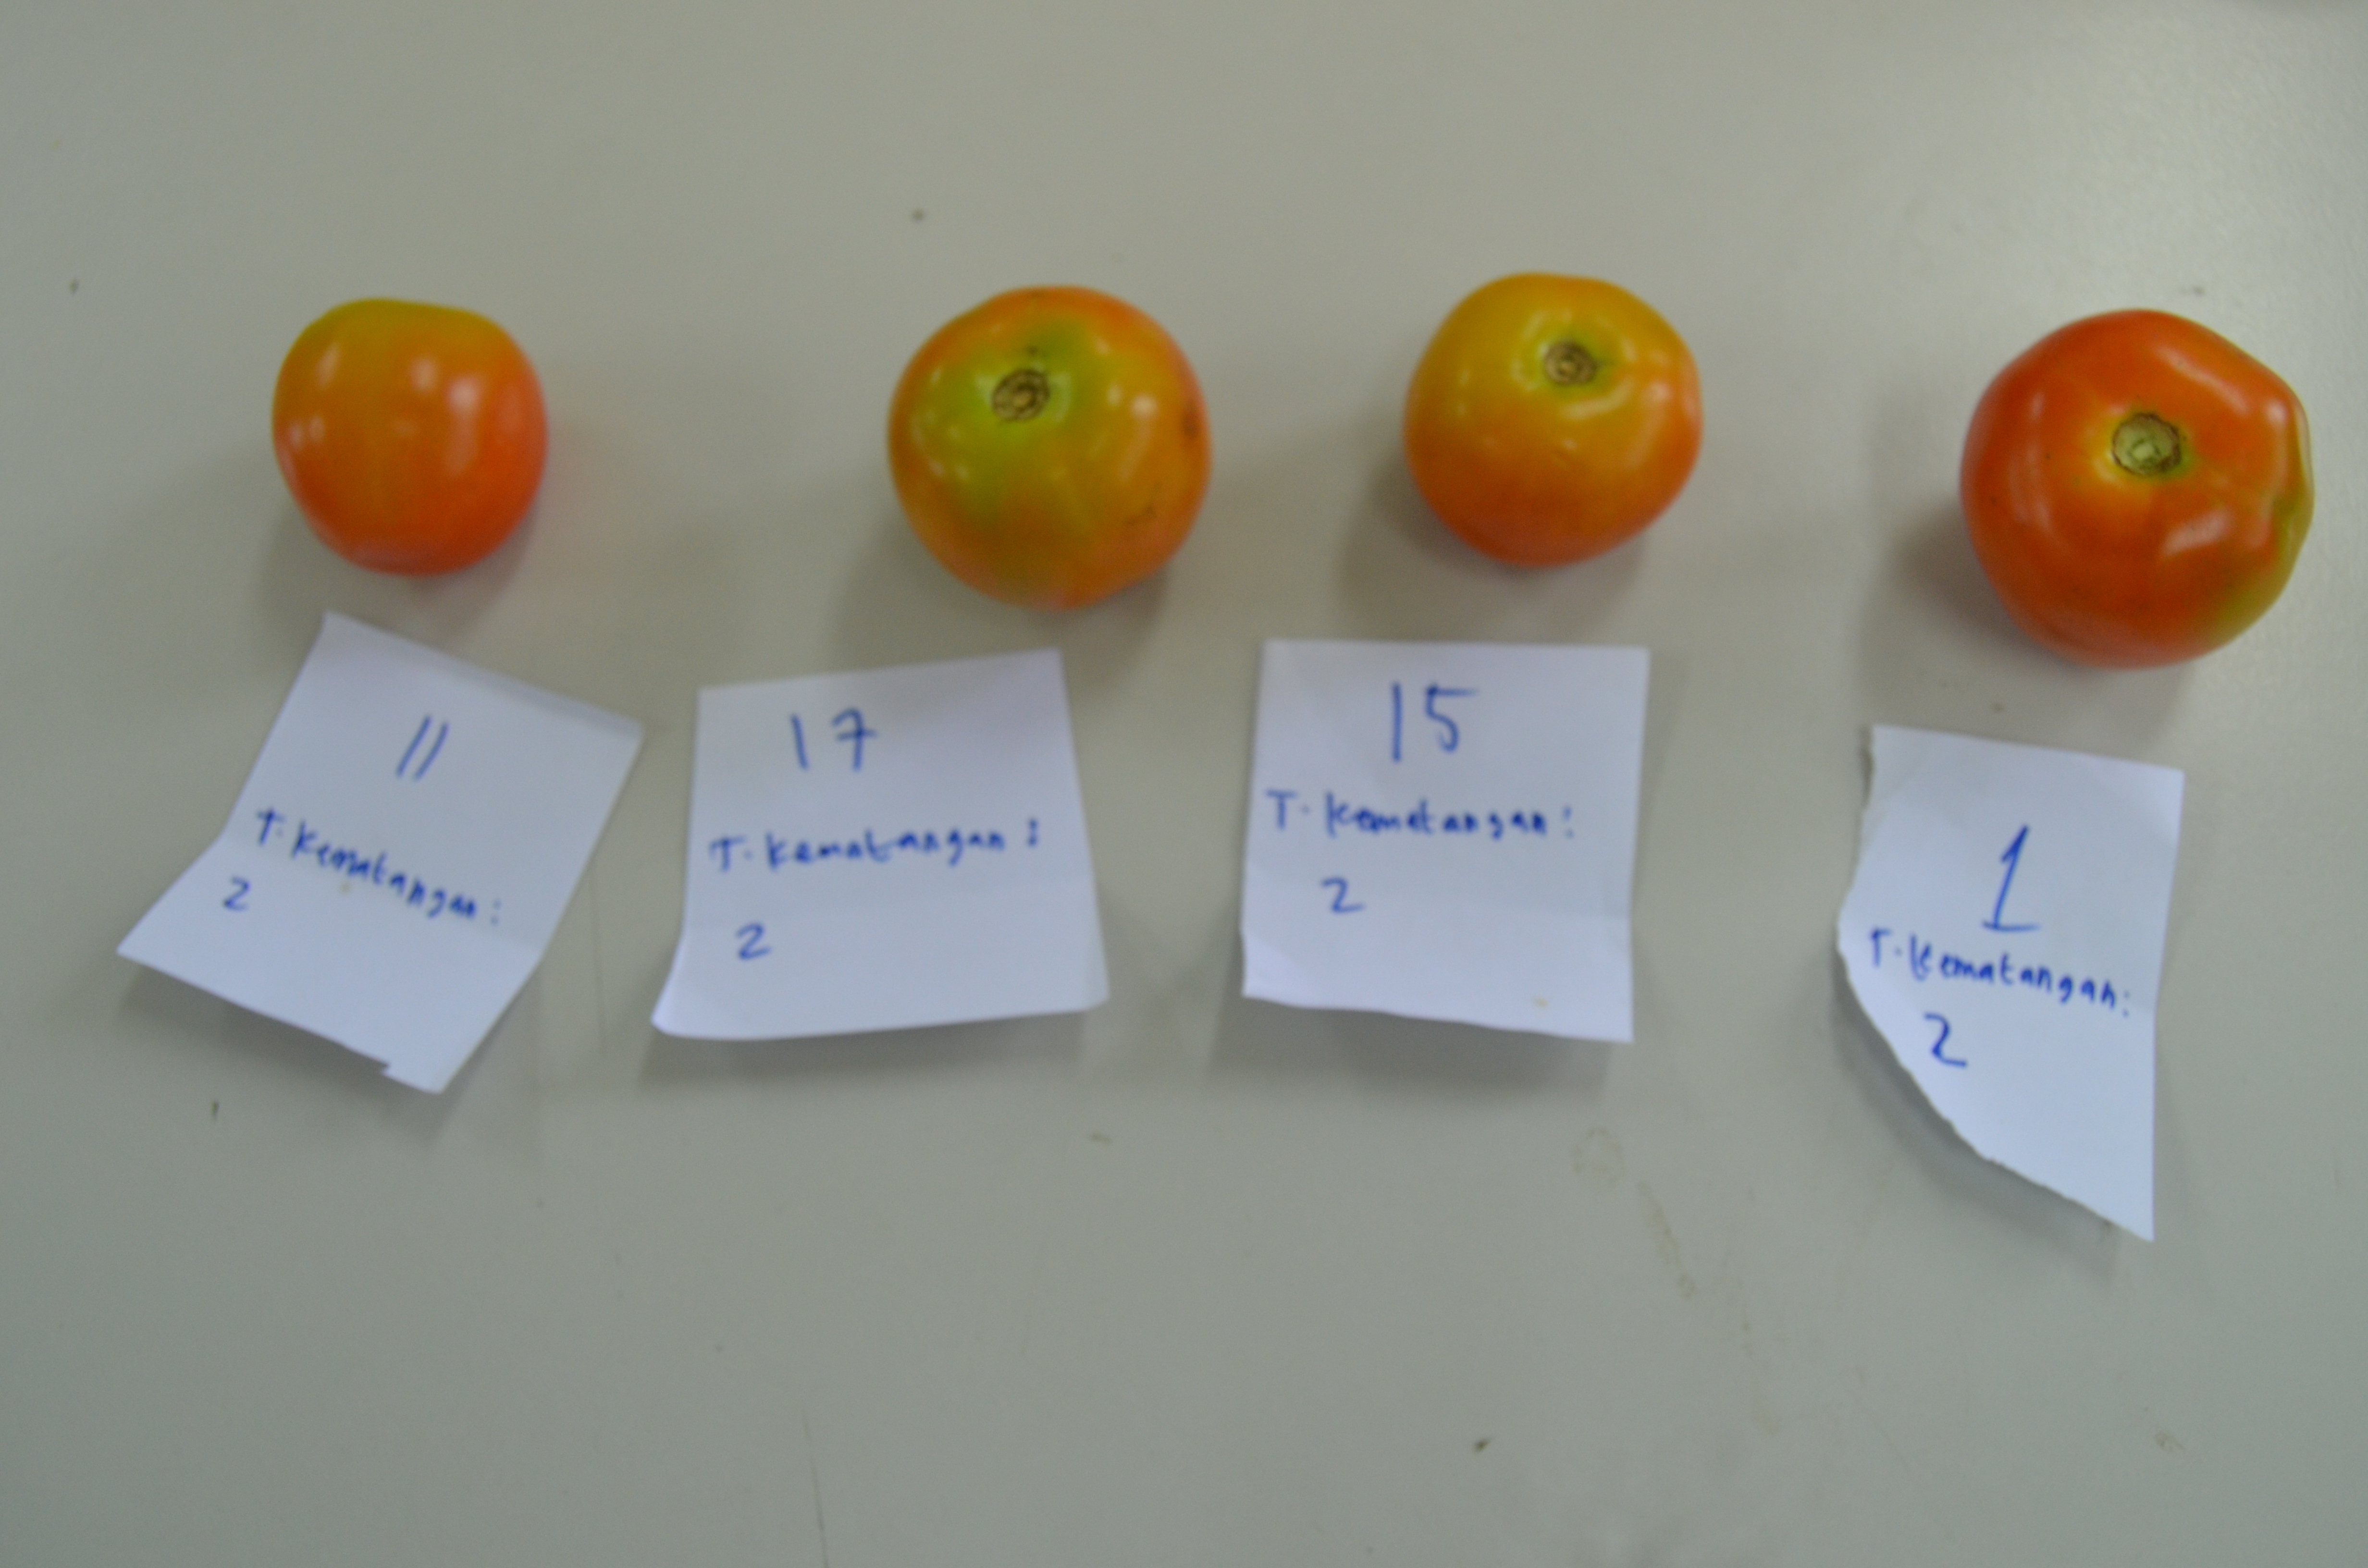 11
T. Kematangan :
2
17
T. Kematangan :
2
15
T. Kematangan :
2
1
T. Kematangan :
2